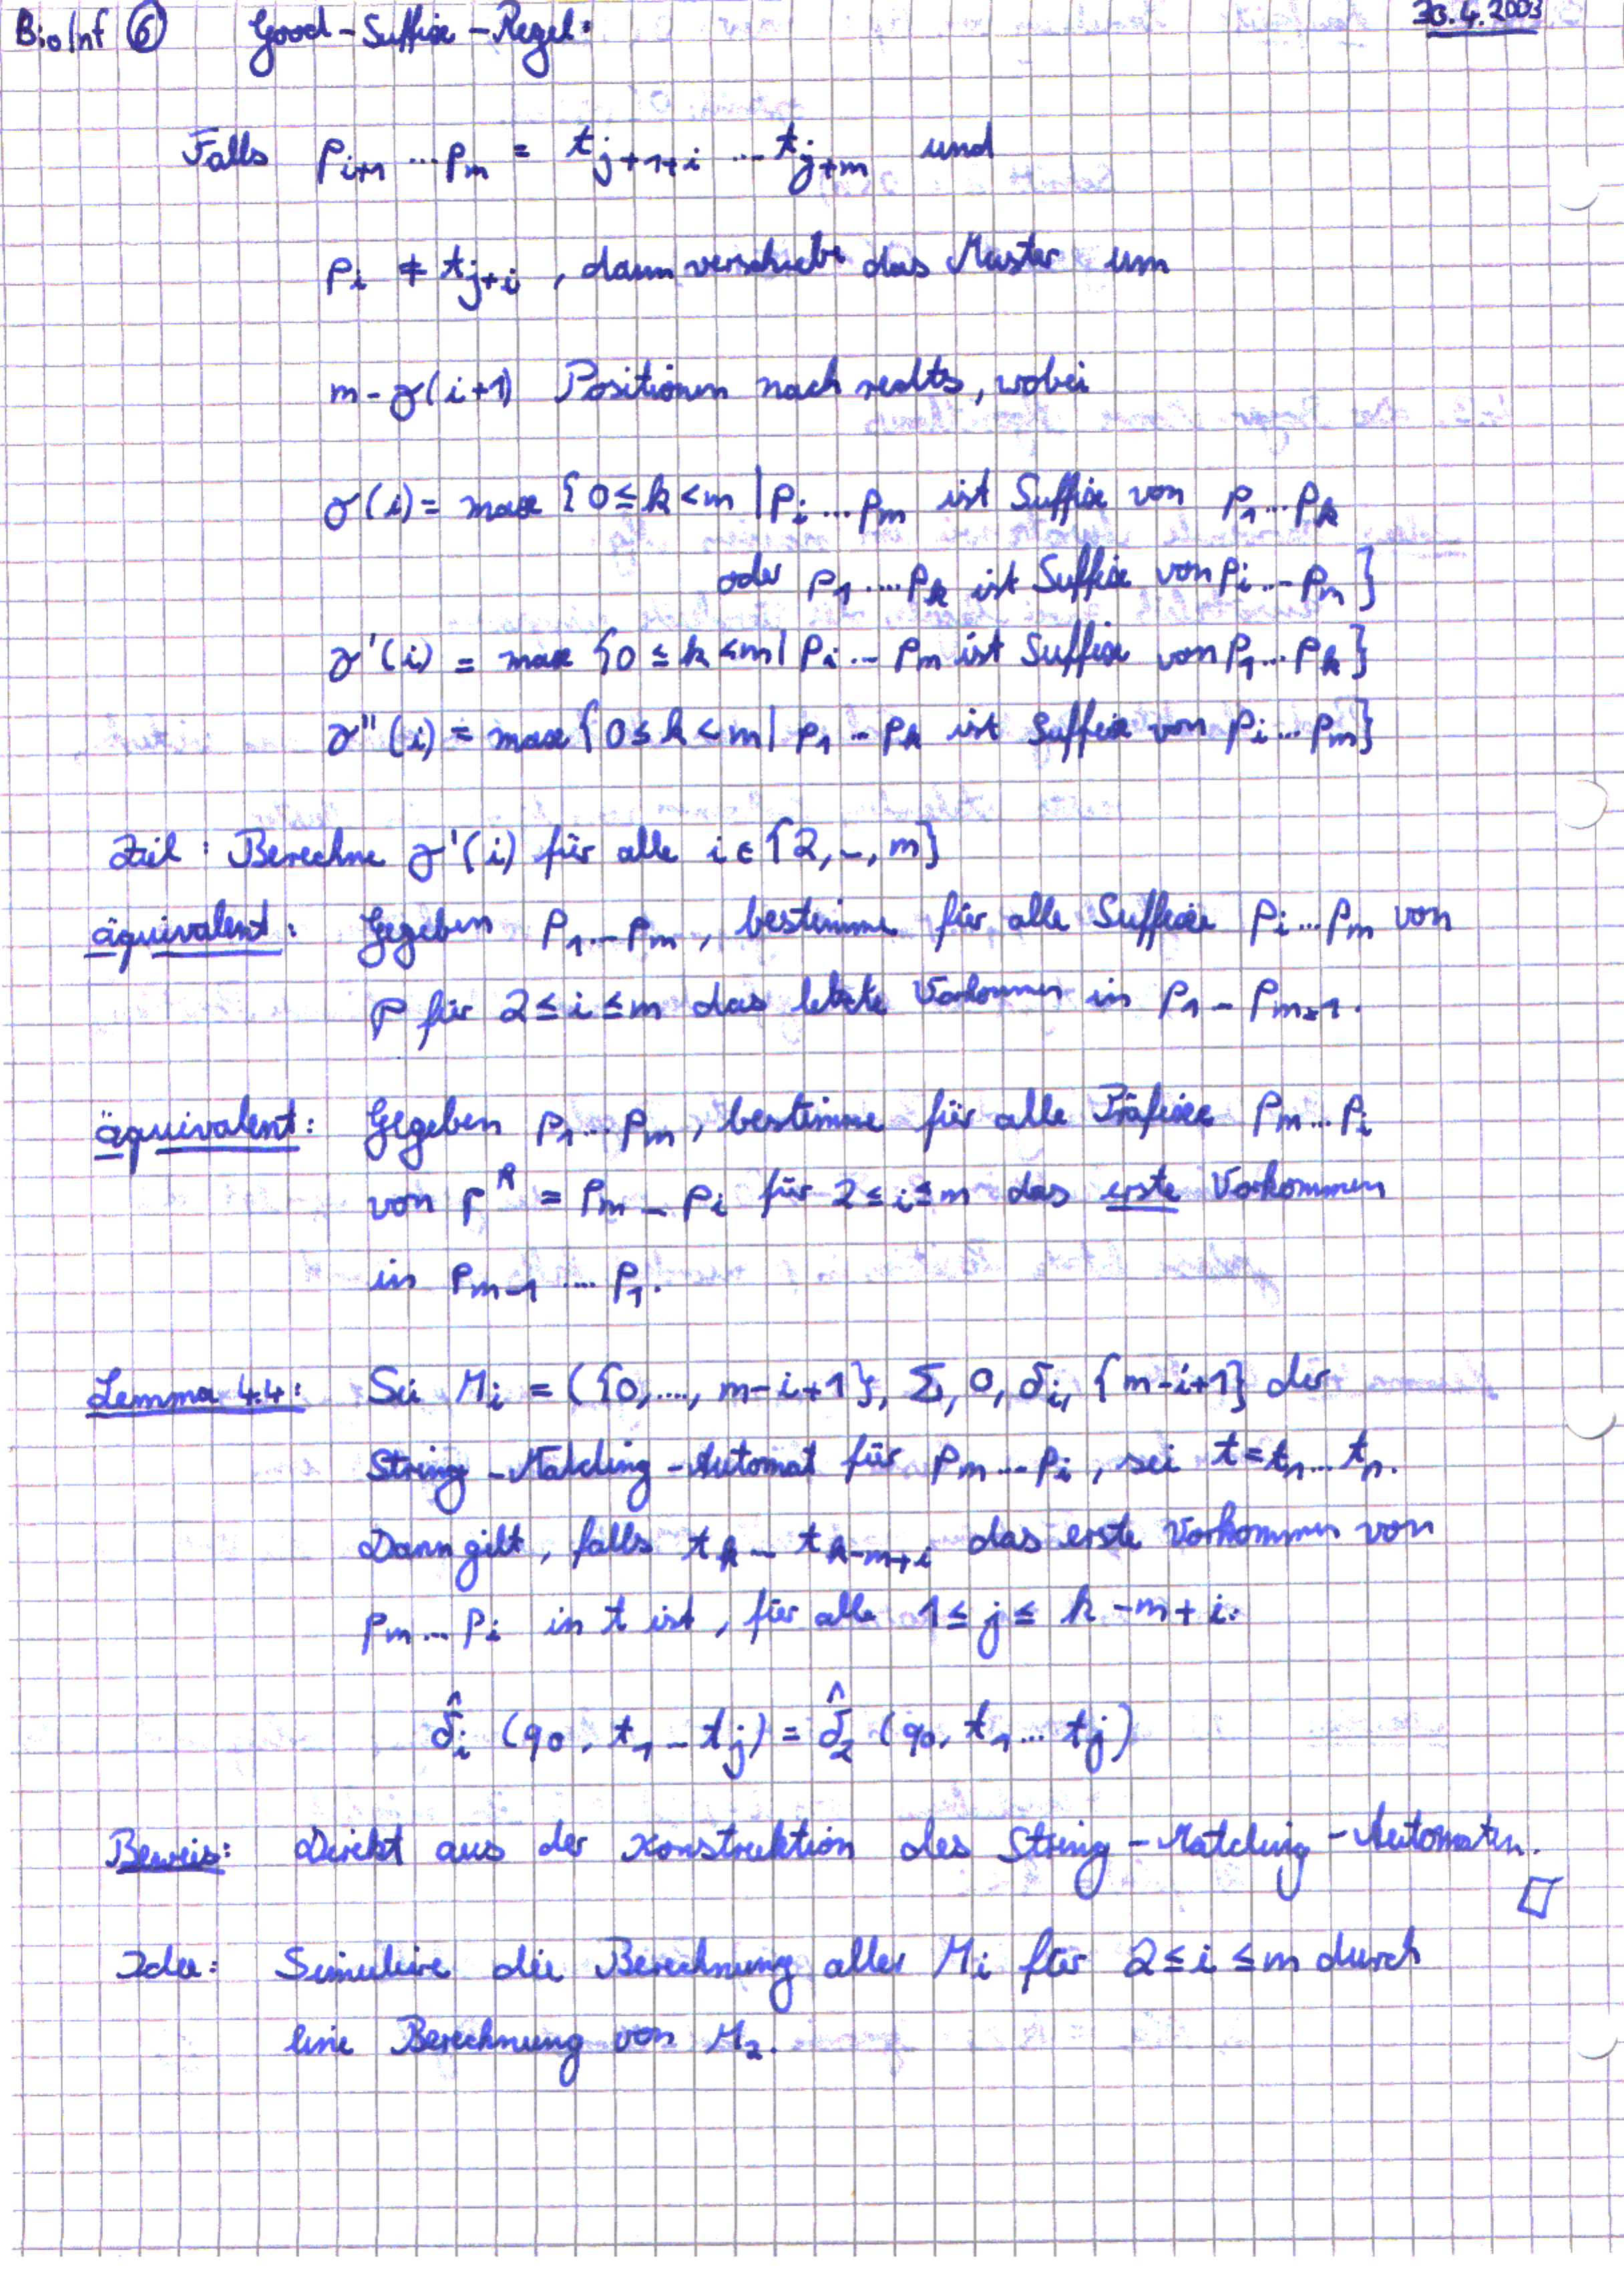 BioInf ⑥ Good-Suffix-Regel: 30.4.2003
Falls p_{i+1} ... p_m = t_{j+1+i} ... t_{j+m} und
p_i ≠ t_{j+i}, dann verschiebe das Muster um
m - γ(i+1) Positionen nach rechts, wobei
γ(i) = max {0 ≤ k < m | p_i ... p_m ist Suffix von p_1 ... p_k
oder p_1 .... p_k ist Suffix von p_i ... p_m}
γ'(i) = max {0 ≤ k < m | p_i ... p_m ist Suffix von p_1 ... p_k}
γ''(i) = max {0 ≤ k < m | p_1 ... p_k ist Suffix von p_i ... p_m}
Ziel: Berechne γ'(i) für alle i ∈ {2, ..., m}
äquivalent: Gegeben p_1 ... p_m, bestimme für alle Suffixe p_i ... p_m von
p für 2 ≤ i ≤ m das letzte Vorkommen in p_1 ... p_{m-1}.
äquivalent: Gegeben p_1 ... p_m, bestimme für alle Präfixe p_m ... p_i
von p^R = p_m ... p_i für 2 ≤ i ≤ m das erste Vorkommen
in p_{m-1} .... p_1.
Lemma 4.4: Sei M_i = ({0, ...., m-i+1}, Σ, 0, δ_i, {m-i+1} der
String-Matching-Automat für p_m ... p_i, sei t = t_1 ... t_n.
Dann gilt, falls t_k ... t_{k-m+i} das erste Vorkommen von
p_m ... p_i in t ist, für alle 1 ≤ j ≤ k-m+i:
δ̂_i (q_0, t_1 ... t_j) = δ̂_2 (q_0, t_1 ... t_j)
Beweis: Direkt aus der Konstruktion des String-Matching-Automaten.
□
Idee: Simuliere die Berechnung aller M_i für 2 ≤ i ≤ m durch
eine Berechnung von M_2.